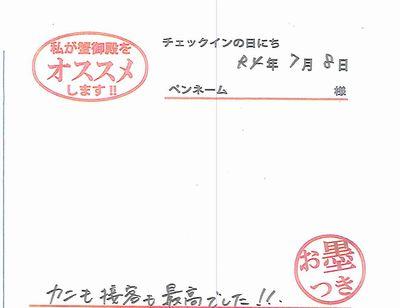 私が蟹御殿を
オススメ
します!!
チェックインの日にち
R4年7月8日
ペンネーム 様
お墨
つき
カニも接客も最高でした!!.